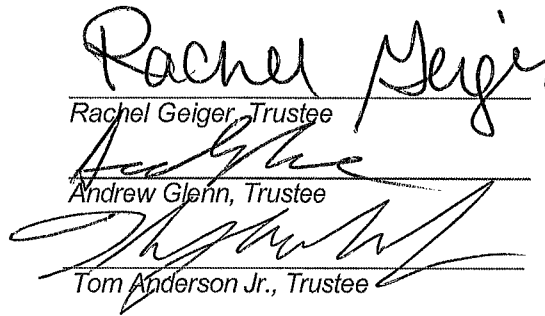 Rachel Geige
Rachel Geiger, Trustee
Andrew Glenn, Trustee
Tom Anderson Jr., Trustee